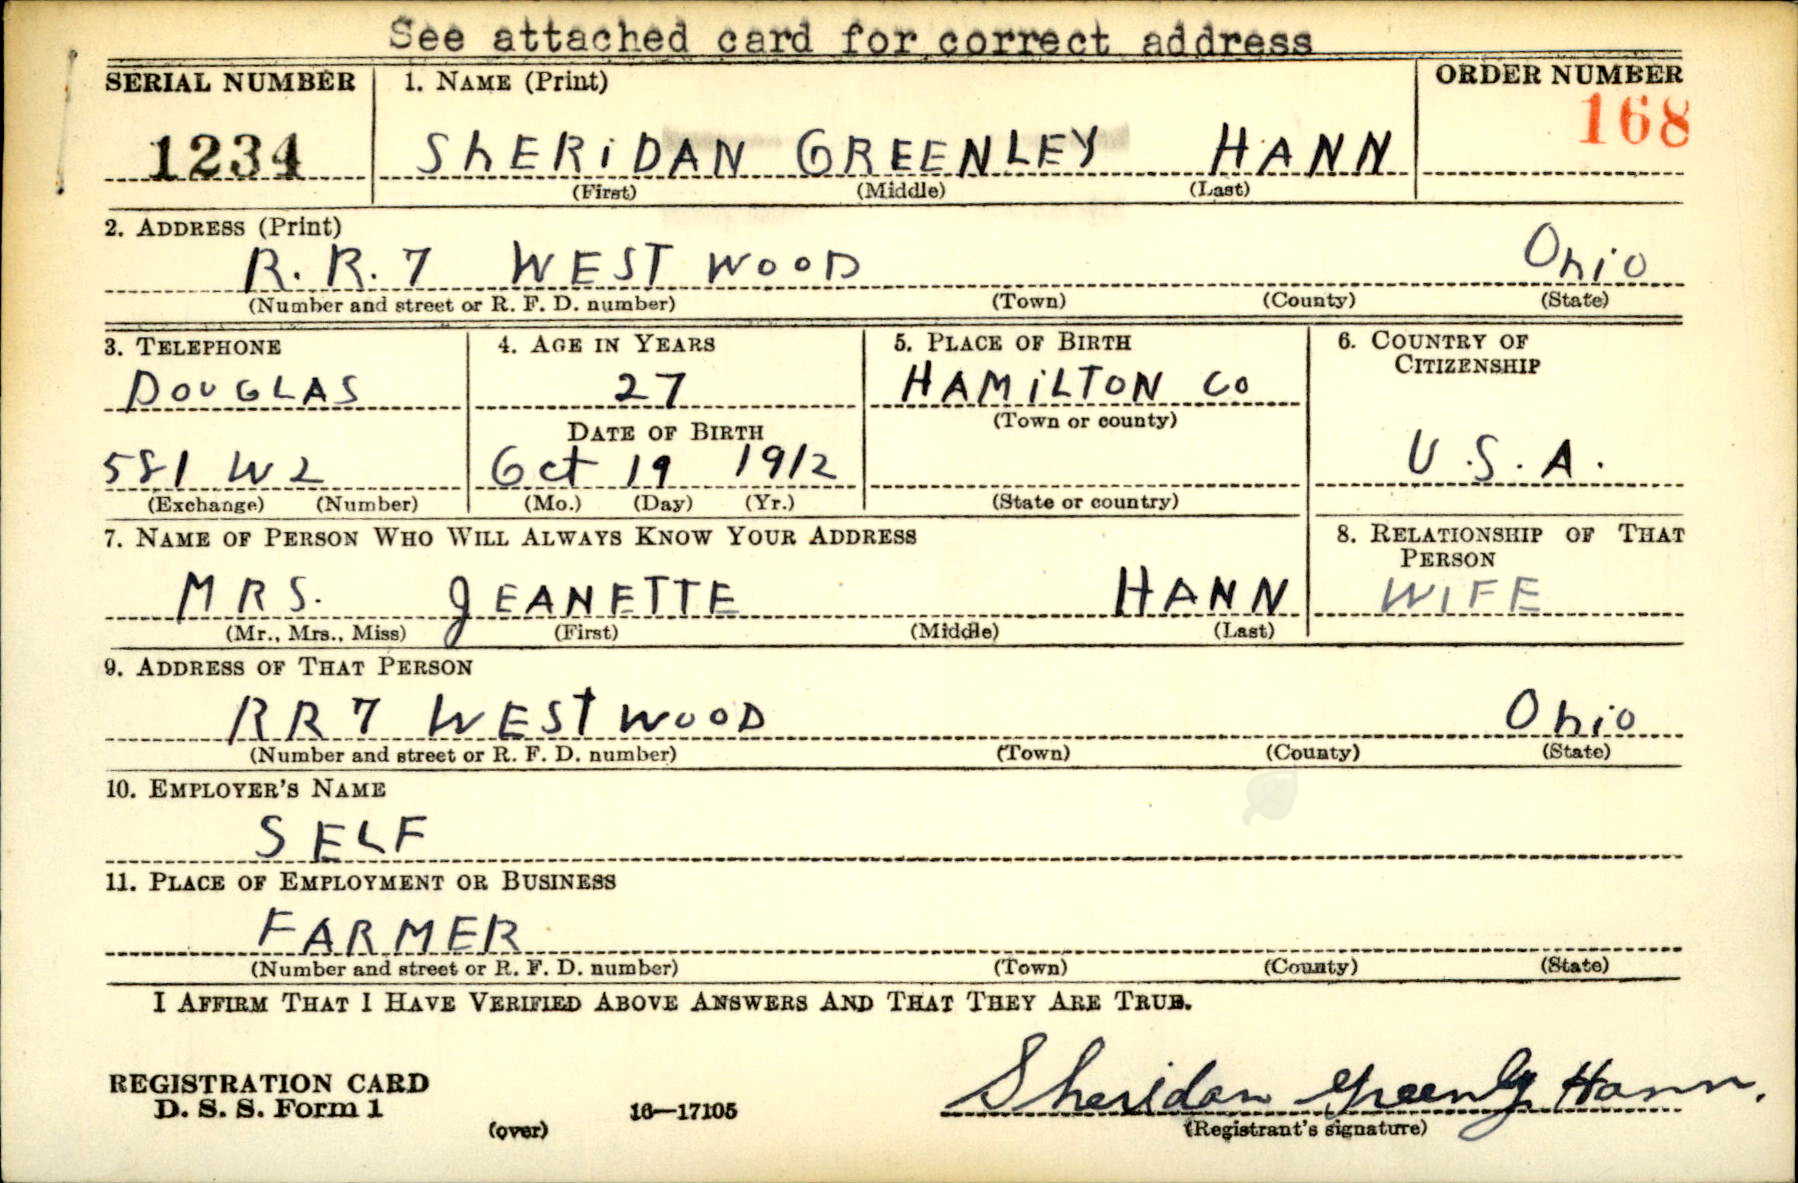 See attached card for correct address
SERIAL NUMBER 1. NAME (Print) ORDER NUMBER
168
1234 ShERiDAN GREENLEY HANN
(First) (Middle) (Last)
2. ADDRESS (Print)
R. R. 7 WEST WOOD Ohio
(Number and street or R. F. D. number) (Town) (County) (State)
3. TELEPHONE 4. AGE IN YEARS 5. PLACE OF BIRTH 6. COUNTRY OF
CITIZENSHIP
DOUGLAS 27 HAMiLTON CO
(Town or county)
DATE OF BIRTH
581 W 2 Oct 19 1912 U.S.A.
(Exchange) (Number) (Mo.) (Day) (Yr.) (State or country)
7. NAME OF PERSON WHO WILL ALWAYS KNOW YOUR ADDRESS 8. RELATIONSHIP OF THAT
PERSON
MRS. JEANETTE HANN WIFE
(Mr., Mrs., Miss) (First) (Middle) (Last)
9. ADDRESS OF THAT PERSON
RR 7 WEST WOOD Ohio
(Number and street or R. F. D. number) (Town) (County) (State)
10. EMPLOYER'S NAME
SELF
11. PLACE OF EMPLOYMENT OR BUSINESS
FARMER
(Number and street or R. F. D. number) (Town) (County) (State)
I AFFIRM THAT I HAVE VERIFIED ABOVE ANSWERS AND THAT THEY ARE TRUE.
REGISTRATION CARD
D. S. S. Form 1 16—17105 Sheridan Greenly Hann.
(over) (Registrant's signature)